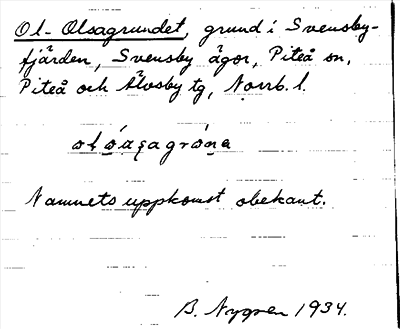 Ol-Olsagrundet, grund i Svensby-
fjärden, Svensby ägor, Piteå sn,
Piteå och Älvsby tg, Norrb. l.
Namnets uppkomst obekant.
B. Nygren 1934.